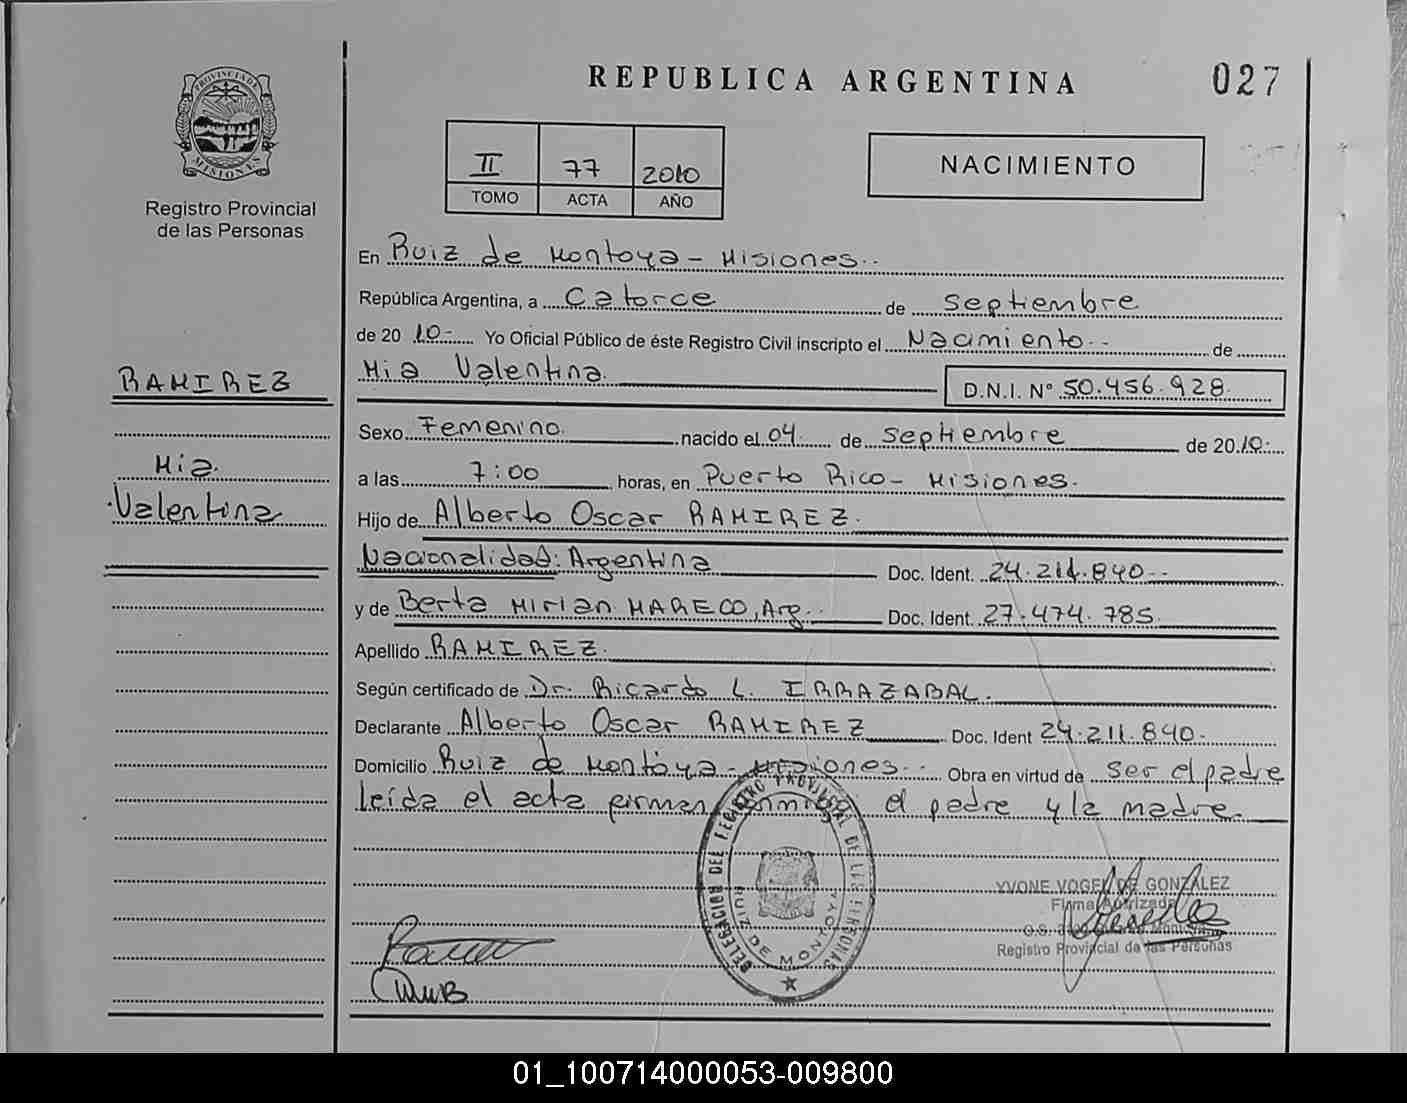 REPUBLICA ARGENTINA
027
PROVINCIA DE
MISIONES
Registro Provincial
de las Personas
II 77 2010
TOMO ACTA AÑO
NACIMIENTO
En Ruiz de Montoya - Misiones..
República Argentina, a Catorce de Septiembre
de 20 10.- Yo Oficial Público de éste Registro Civil inscripto el Nacimiento.- de
Mia Valentina. D.N.I. Nº 50.456.928.
RAMIREZ
Mia.
Valentina
Sexo Femenino. nacido el 04. de Septiembre de 20 10.
a las 7:00 horas, en Puerto Rico - Misiones.
Hijo de Alberto Oscar RAMIREZ.
Nacionalidad: Argentina Doc. Ident. 24.211.840.-
y de Berta Mirian MARECO, Arg.. Doc. Ident. 27.474.785
Apellido RAMIREZ.
Según certificado de Dr. Ricardo L. IRRAZABAL.
Declarante Alberto Oscar RAMIREZ Doc. Ident 24.211.840.
Domicilio Ruiz de Montoya - Misiones.. Obra en virtud de Ser el padre
leída el acta firman conmigo el padre y la madre.
DELEGACION DEL REGISTRO PROVINCIAL DE LAS PERSONAS
RUIZ DE MONTOYA
YVONE VOGEL DE GONZALEZ
Firma Autorizada
Registro Provincial de las Personas
01_100714000053-009800